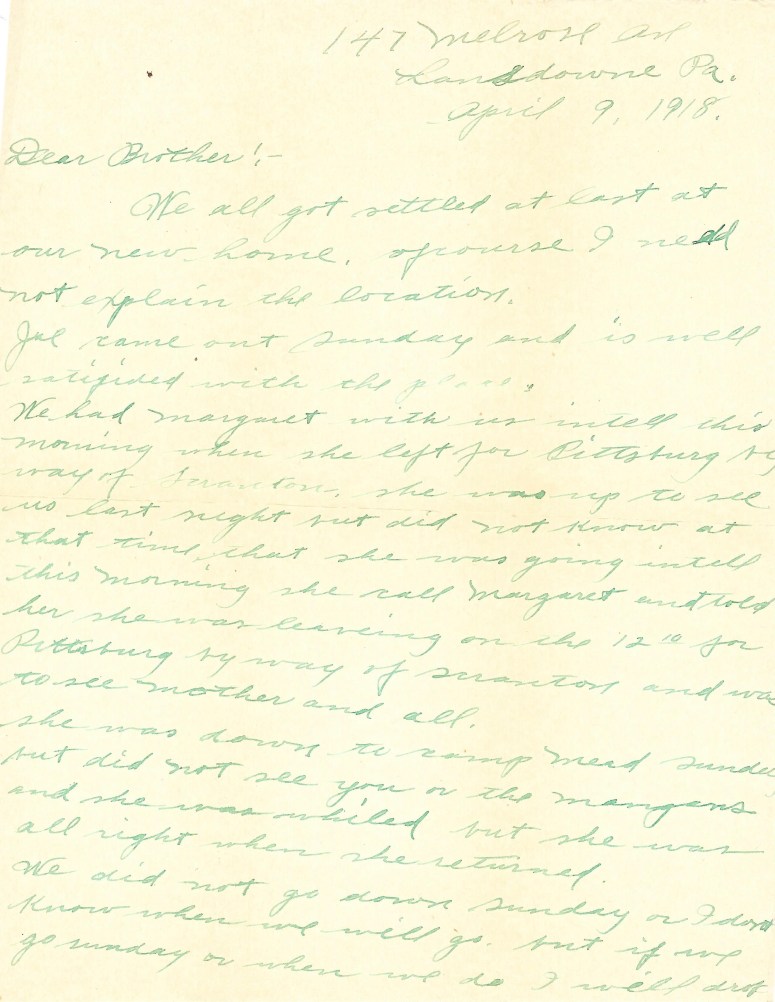 147 Melrose Ave
Lansdowne Pa.
April 9, 1918.
Dear Brother!-
We all got settled at last at
our new home. ofcourse I need
not explain the location.
Jul came out sunday and is well
satisfided with the place.
We had Margaret with us intell this
morning when she left for Pittsburg by
way of Scranton. she was up to see
us last night but did not know at
that time, that she was going intell
this morning she call Margaret and told
her she was leaveing on the 12 10 for
Pittsburg by way of Scranton and was
to see mother and all.
she was down to camp Mead sunday
but did not see you or the mangans
and she was whiled but she was
all right when she returned.
We did not go down sunday or I dont
know when we will go. but if we
go sunday or when we do I will drop